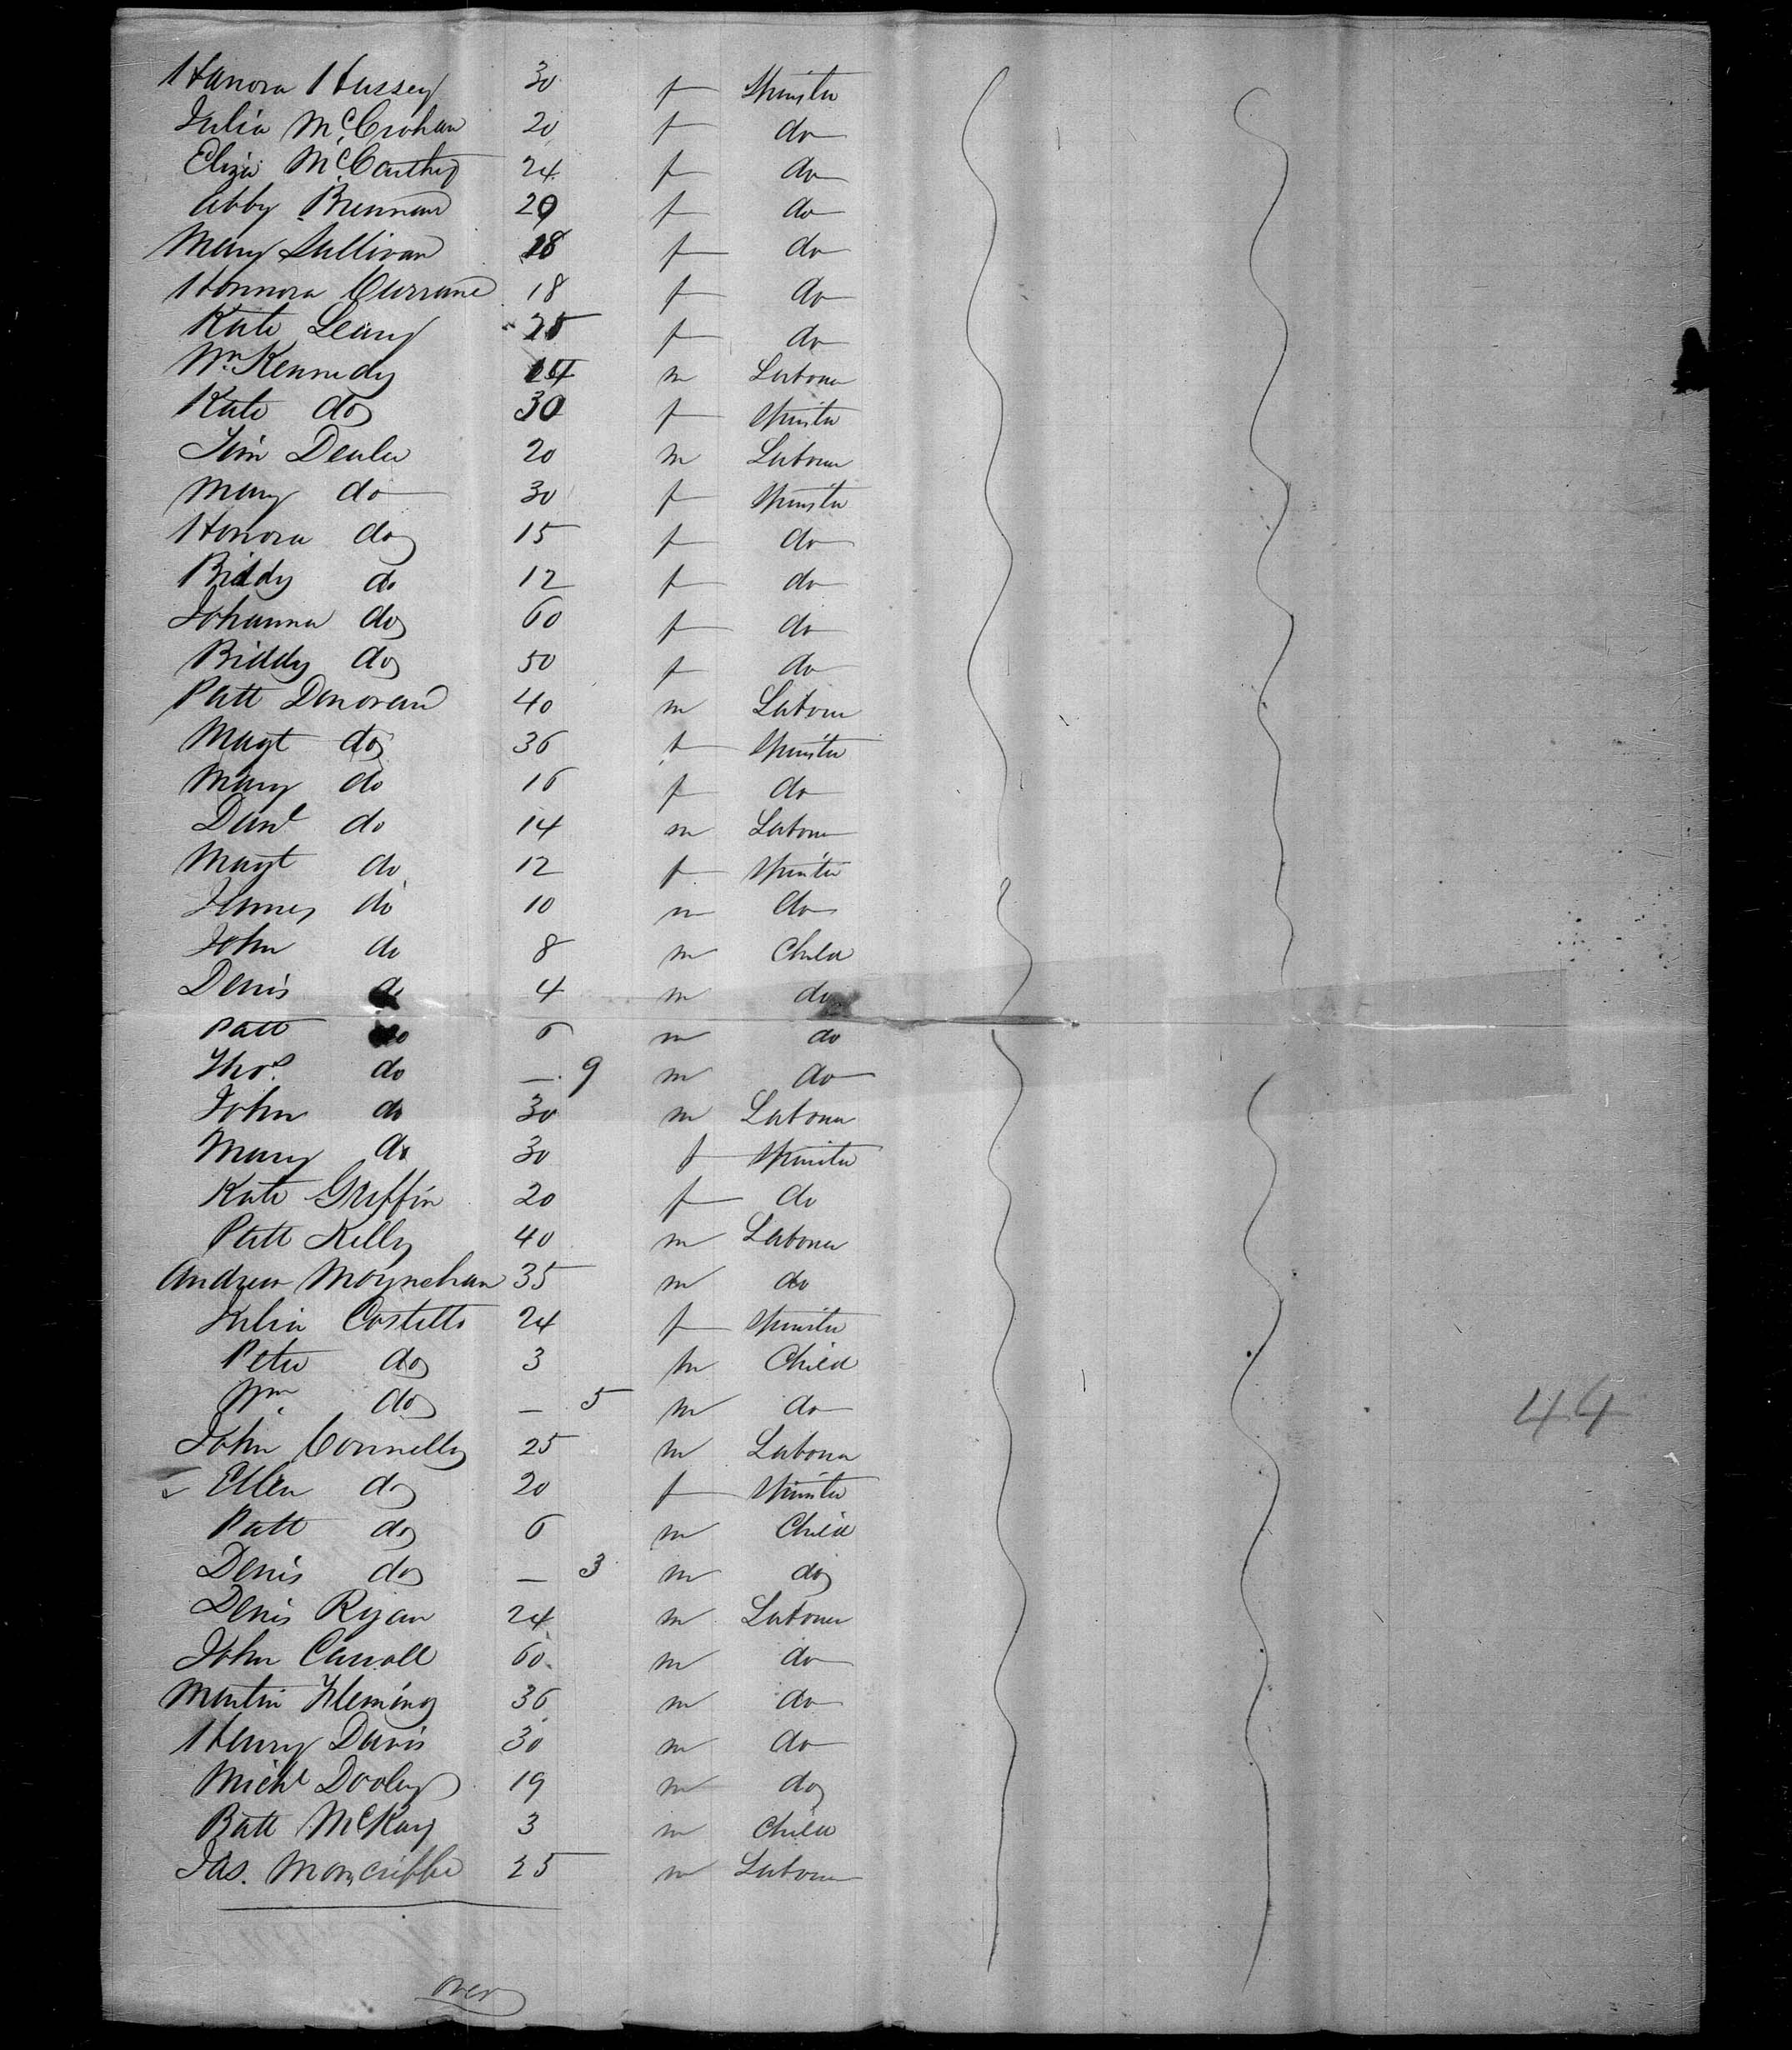 Hanora Hussey 30 f Spinster
Julia McCrohan 20 f do
Eliza McCarthy 24 f do
Abby Brennan 29 f do
Mary Sullivan 18 f do
Honnora Currane 18 f do
Kate Leary 25 f do
Wm Kennedy 14 m Labourer
Kate do 30 f Spinster
Jim 20 m Labourer
Mary do 30 f Spinster
Honora do 15 f do
Biddy do 12 f do
Johanna do 60 f do
Biddy do 50 f do
Patt Donovan 40 m Labourer
Magt do 36 f Spinster
Mary do 16 f do
Danl do 14 m Labourer
Magt do 12 f Spinster
James do 10 m do
John do 8 m Child
Denis do 4 m do
Patt do 6 m do
Thos. do — 9 m do
John do 30 m Labourer
Mary do 30 f Spinster
Kate Griffin 20 f do
Patt Kelly 40 m Labourer
Andrew Moynehan 35 m do
Julia Costello 24 f Spinster
Peter do 3 m Child
Wm. do — 5 m do
John Connelly 25 m Labourer
Ellen do 20 f Spinster
Patt do 6 m Child
Denis do — 3 m do
Denis Ryan 24 m Labourer
John Carroll 60 m do
Martin Fleming 36 m do
Henry Davis 30 m do
Michl Dooley 19 m do
Batt McKay 3 m Child
Jas. Moncriffe 25 m Labourer
over
44